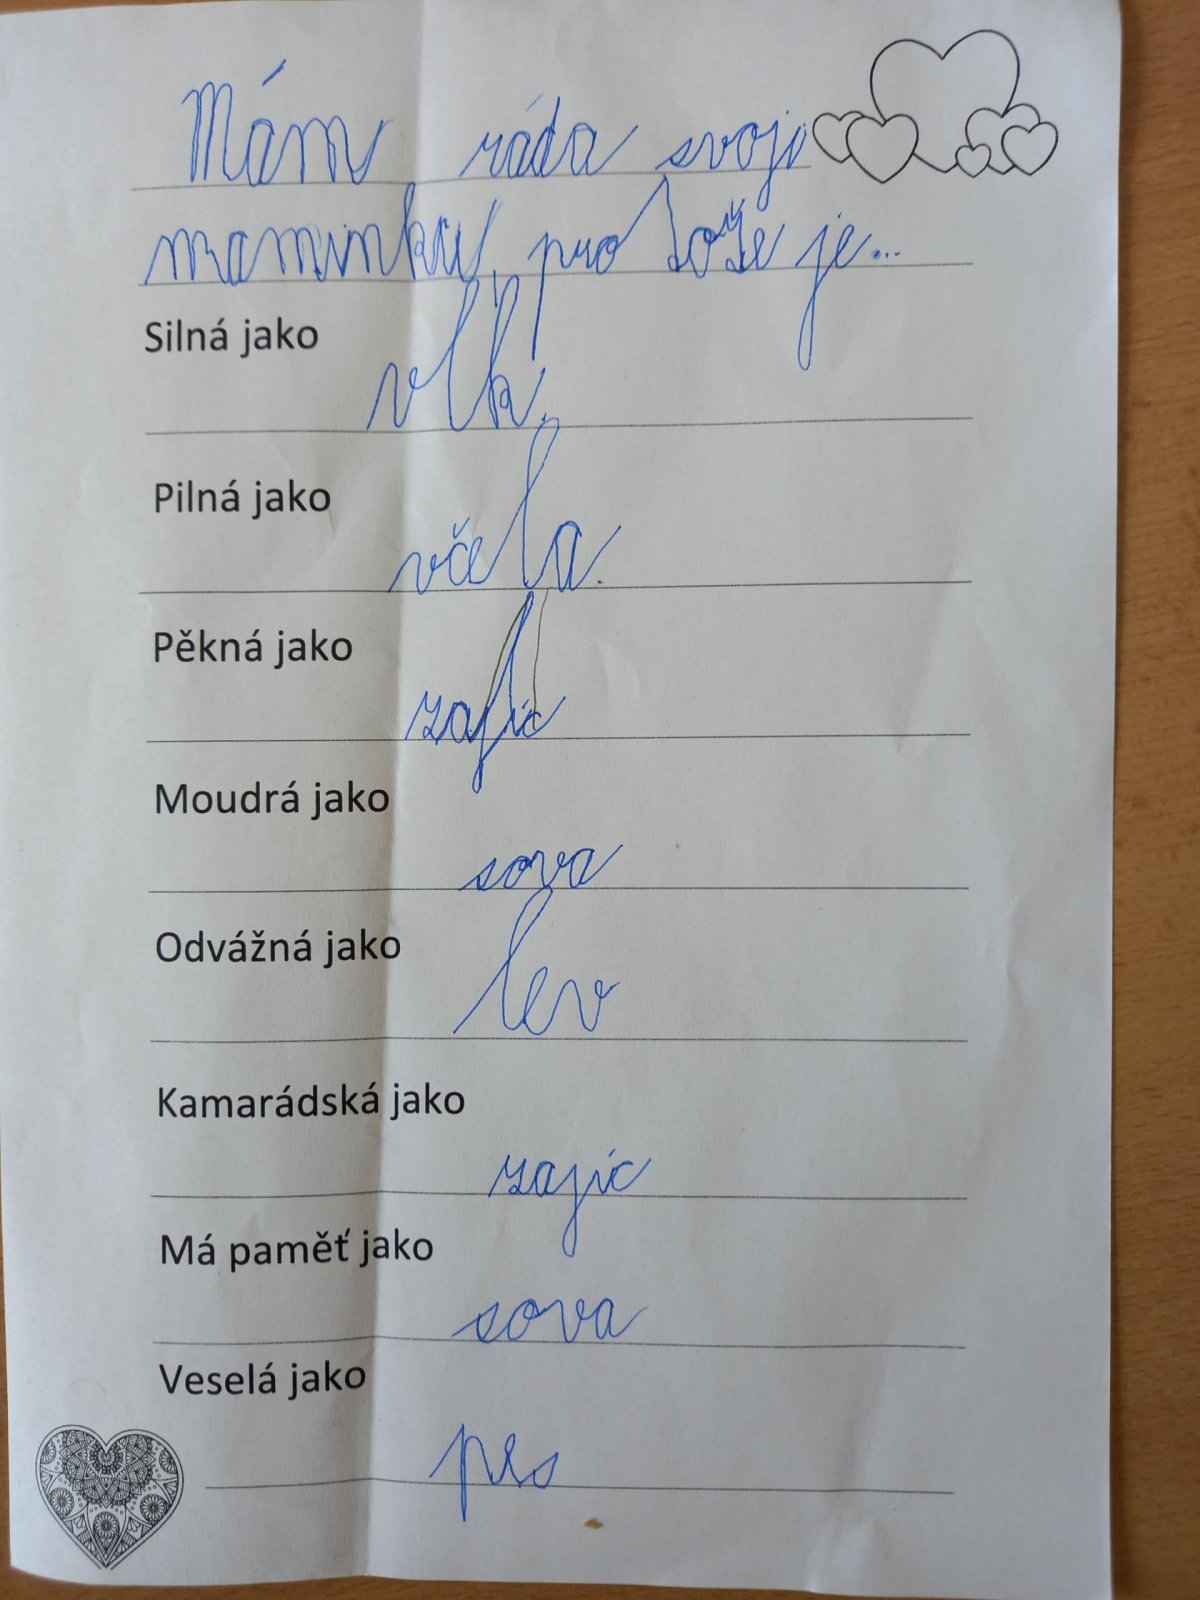 Mám ráda svoji
maminku, protože je...
Silná jako
vlk.
Pilná jako
včela.
Pěkná jako
zajíc
Moudrá jako
sova
Odvážná jako
lev
Kamarádská jako
zajíc
Má paměť jako
sova
Veselá jako
pes